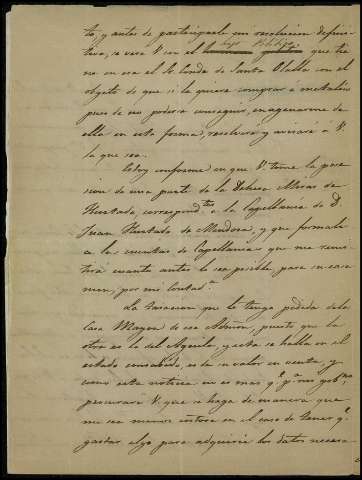 to, y antes de participarle mi resolucion defini-
tiva, se vea V. con el que tie
ne en esa el Sr. Conde de Santa Olalla con el
objeto de que si la quiere comprar á metalico
pues de no poder conseguir, enagenarme de
ella en esta forma, resolveré y avisaré á V.
lo que sea.
Estoy conforme en que V. tome la pose
sion de una parte de la Dehesa Miras de
Hurtado, correspond.tes á la Capellanía de D.
Juan Hurtado de Mendoza, y que formali
ce las cuentas de Capellanía que me remi
tirá cuanto antes le sea posible para su exa
men, por mi Contad.a
La tasacion que le tengo pedida de la
Casa Mayor de esa Admon, puesto que la
otra es la del Aguila, y esta se halla en el
estado consabido, es de su valor en venta, y
como esta noticia no es mas q.e p.a mi gob.no,
procurará V. que se haga de manera que
me sea menos costosa en el caso de tener q.e
gastar algo para adquirir los datos necesa-